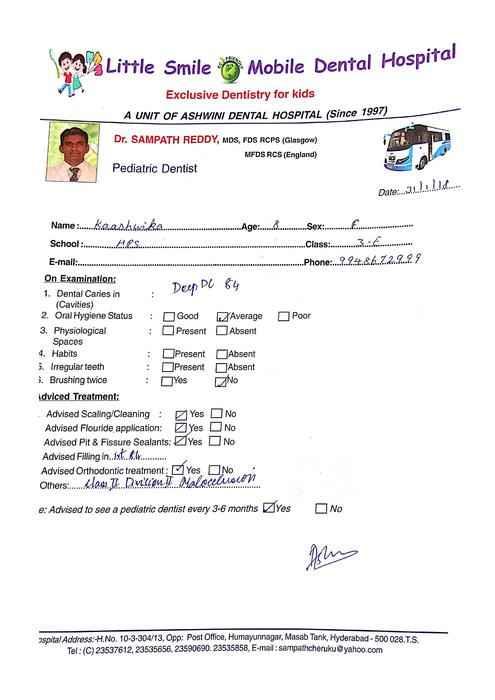 Little Smile Mobile Dental Hospital
Exclusive Dentistry for kids
A UNIT OF ASHWINI DENTAL HOSPITAL (Since 1997)
Dr. SAMPATH REDDY, MDS, FDS RCPS (Glasgow)
MFDS RCS (England)
Pediatric Dentist
Date: 21/1/18
Name: Kaashwika Age: 8 Sex: F
School: HPS Class: 3-E
E-mail: Phone: 9948672999
On Examination:
1. Dental Caries in : Deep DC 84
(Cavities)
2. Oral Hygiene Status : Good Average Poor
3. Physiological : Present Absent
Spaces
4. Habits : Present Absent
5. Irregular teeth : Present Absent
6. Brushing twice : Yes No
dviced Treatment:
Advised Scaling/Cleaning : Yes No
Advised Flouride application: Yes No
Advised Pit & Fissure Sealants: Yes No
Advised Filling in
Advised Orthodontic treatment: Yes No
Others: class II Division II Malocclusion
e: Advised to see a pediatric dentist every 3-6 months Yes No
ospital Address:-H.No. 10-3-304/13, Opp: Post Office, Humayunnagar, Masab Tank, Hyderabad - 500 028.T.S.
Tel : (C) 23537612, 23535656, 23590690. 23535858, E-mail : sampathcheruku@yahoo.com